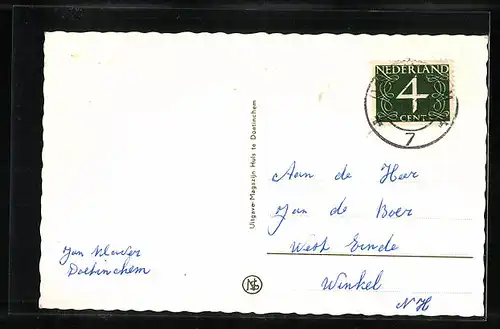 NEDERLAND
4
CENT
7
Uitgave: Magazijn Huls te Doetinchem
Aan de Heer
Jan de Boer
West Einde
Winkel
N H
Jan Klaver
Doetinchem